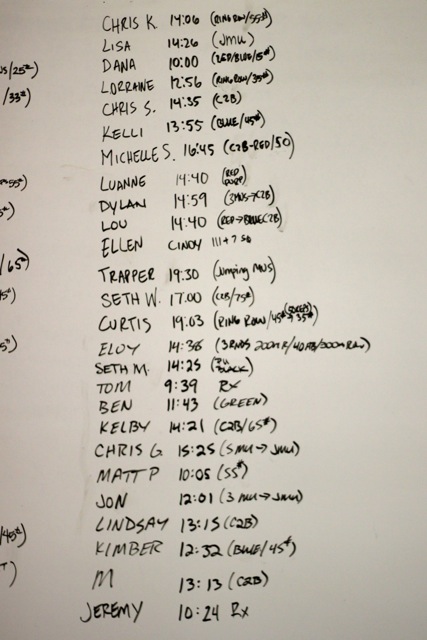 CHRIS K. 14:06 (RING ROW/55#)
LISA 14:26 (JMU)
DANA 10:00 (RED/BLUE/15#)
LORRAINE 12:56 (RING ROW/35#)
CHRIS S. 14:35 (C2B)
KELLI 13:55 (BLUE/45#)
MICHELLE S. 16:45 (C2B-RED/50)
LUANNE 14:40 (RED
DYLAN 14:59 (3MUS→C2B)
LOU 14:40 (RED→BLUE C2B)
ELLEN CINDY III + 7 SQ
TRAPPER 19:30 (Jumping MUS)
SETH W. 17:00 (C2B/75#)
CURTIS 19:03 (RING ROW/45# → 35#)
ELOY 14:38 (3RNDS 200M R/40
SETH M. 14:25 BLACK)
TOM 9:39 RX
BEN 11:43 (GREEN)
KELBY 14:21 (C2B/65#)
CHRIS G. 15:25 (5MU→JMU)
MATT P 10:05 (55#)
JON 12:01 (3 MU→JMU)
LINDSAY 13:15 (C2B)
KIMBER 12:32 (BLUE/45#)
M 13:13 (C2B)
JEREMY 10:24 RX
/25#)
/33#)
/65#)